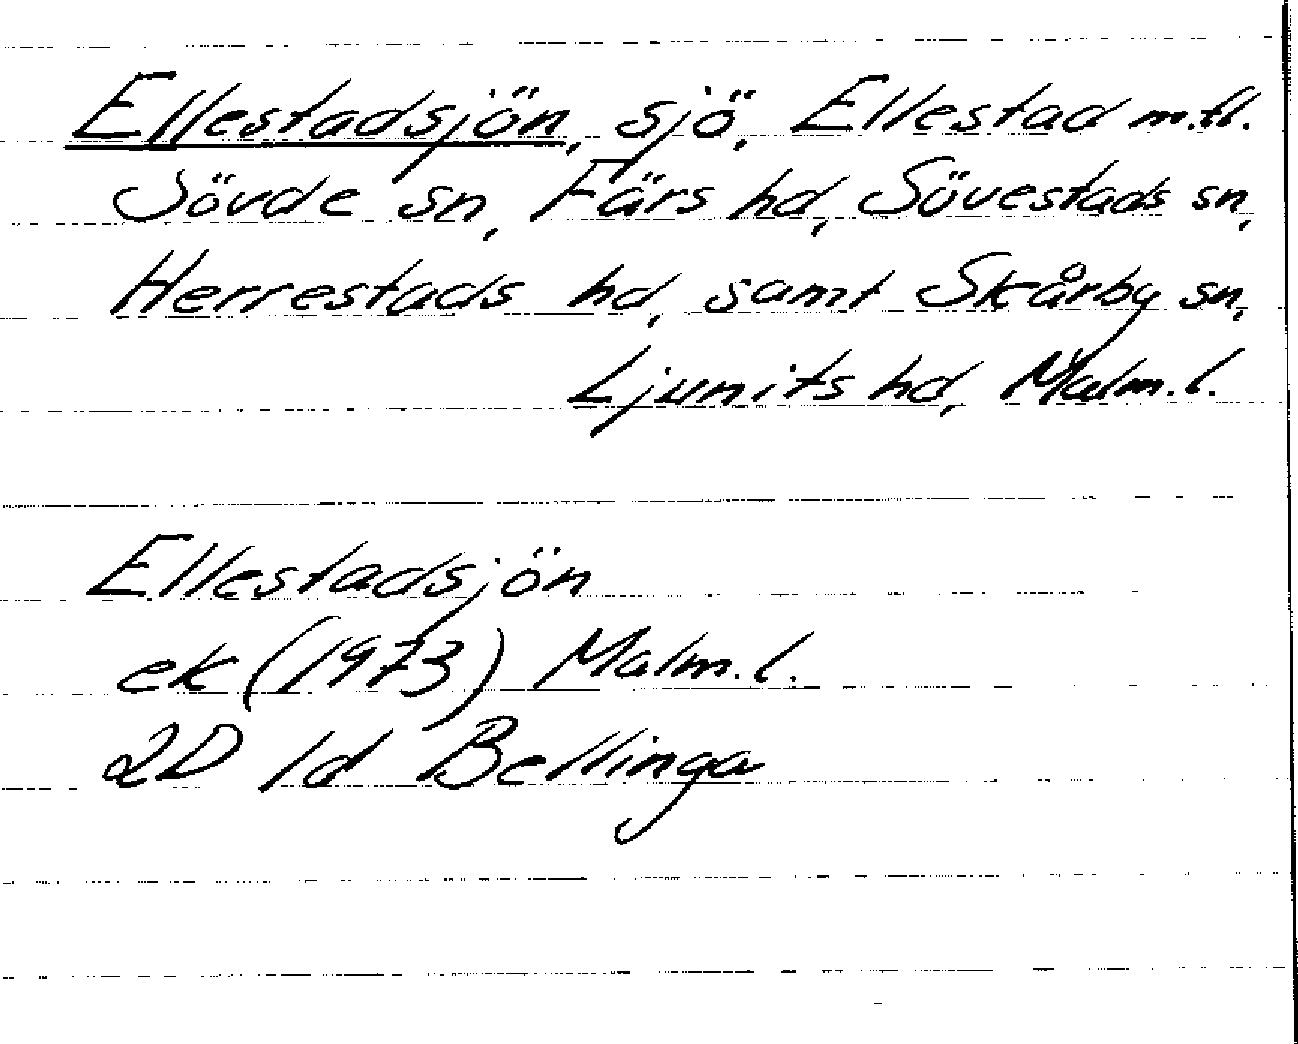 Ellestadsjön, sjö, Ellestad m.fl.
Sövde sn, Färs hd, Sövestads sn,
Herrestads hd, samt Skårby sn,
Ljunits hd, Malm.l.
Ellestadsjön
ek (1973) Malm.l.
2D 1d Bellinga